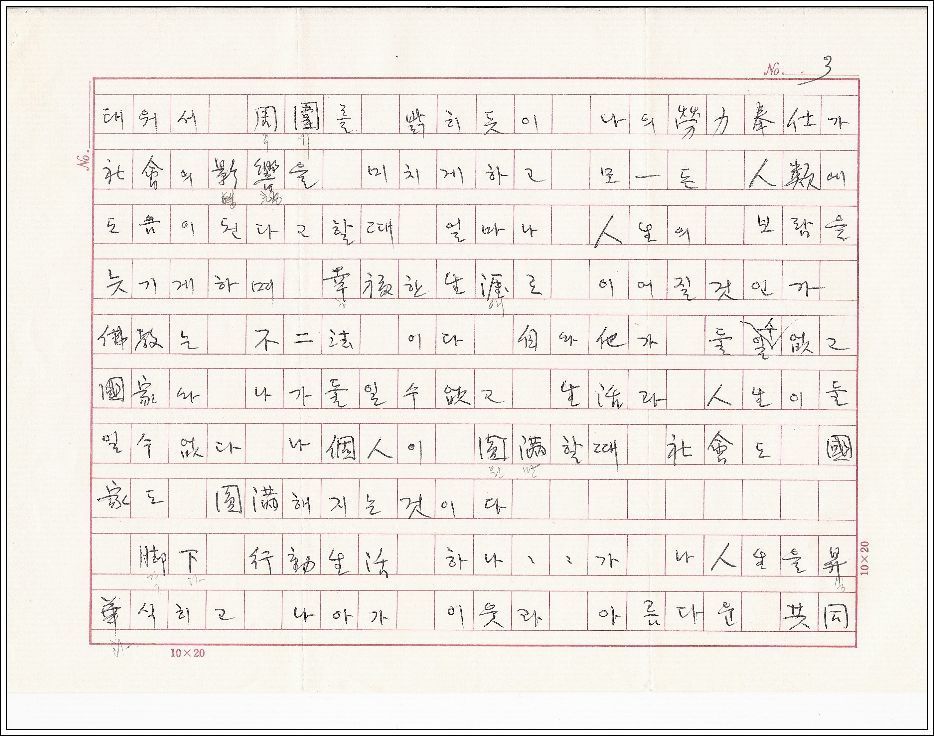 No. 3
No.
태워서 周圍를 밝히듯이 나의 勞力奉仕가
社會의 影響을 미치게하고 모一든 人類에
도움이 된다고 할때 얼마나 人生의 보람을
늣기게하며 幸福한 生涯로 이어질것인가
佛敎는 不二法 이다 自와 他가 둘일수없고
國家와 나가둘일수없고 生活과 人生이둘
일수없다 나個人이 圓滿할때 社會도 國
家도 圓滿해지는것이다
脚下 行動生活 하나〻가 나人生을昇
華식히고 나아가 이웃과 아름다운 共同
10×20
10×20